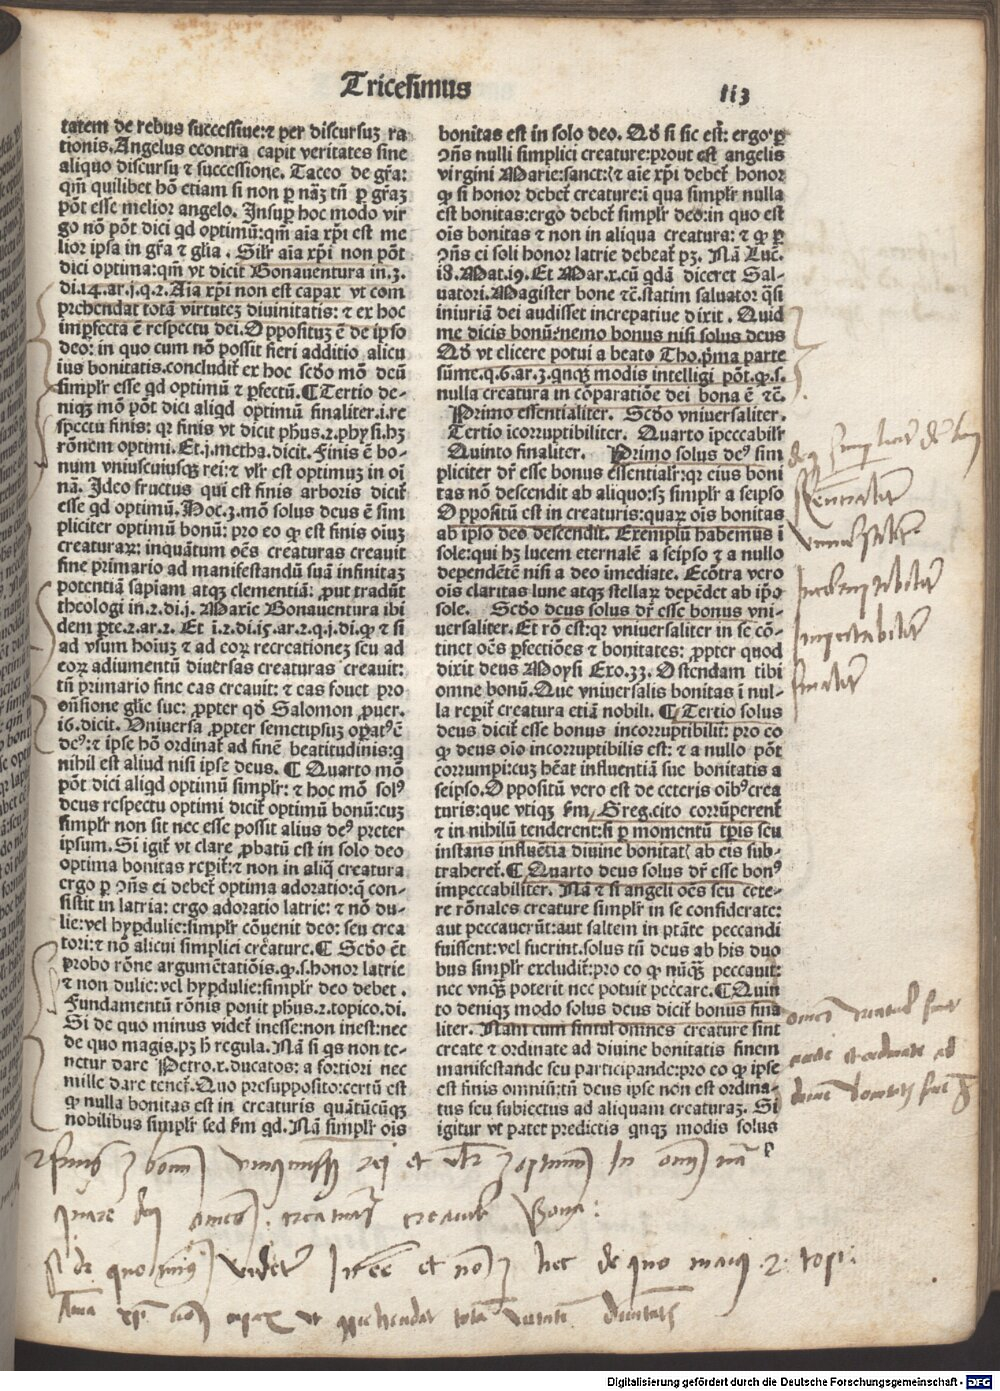 Tricesimus
113
tatem de rebus successiue:⁊ per discursuȝ ra
tionis. Angelus econtra capit veritates sine
aliquo discursu ⁊ successione. Taceo de gr̄a:
qm̄ quilibet hō etiam si non ꝑ nāȝ tn̄ ꝑ gr̄aȝ
pōt esse melior angelo. Insuꝑ hoc modo vir
go nō pōt dici qd optimū:qm̄ aīa xp̄i est me
lior ipsa in gr̄a ⁊ gl̄ia. Sil̄r aīa xp̄i non pōt
dici optima:qm̄ vt dicit Bonauentura in.3.
di.14.ar.j.q.2. Aīa xp̄i non est capax vt com
prehendat totā virtuteȝ diuinitatis: ⁊ ex hoc
imꝑfecta ē respectu dei. Opposituȝ ē de ipso
deo: in quo cum nō possit fieri additio alicu
ius bonitatis. concludit̄ ex hoc scd̄o mō deū
simpl̄r esse qd optimū ⁊ ꝑfectū. ¶ Tertio de-
niqȝ mō pōt dici aliqd optimū finaliter.i.re
spectu finis: qꝛ finis vt dicit ph̄us.2.physi.hȝ
rōnem optimi. Et.j.metha.dicit. Finis ē bo-
num vniuscuiusqȝ rei:⁊ vl̄r est optimuȝ in oī
nā. Ideo fructus qui est finis arboris dicit̄
esse qd optimū. Hoc.3.mō solus deus ē sim
pliciter optimū bonū: pro eo ꝙ est finis oiuȝ
creaturaꝝ: inquātum oēs creaturas creauit
fine primario ad manifestandū suā infinitaȝ
potentiā sapiam atqȝ clementiā: ꝓut tradūt
theologi in.2.di.j. Maxie Bonauentura ibi
dem ꝑte.2.ar.2. Et i.2.di.15.ar.2.q.j.di.ꝙ ⁊ si
ad vsum hoiuȝ ⁊ ad eoꝝ recreationeȝ seu ad
eoꝝ adiumentū diuersas creaturas creauit:
tn̄ primario fine eas creauit: ⁊ eas fouet pro
on̄sione gl̄ie sue: ꝓpter qd̄ Salomon ꝓuer.
16.dicit. Vniuersa ꝓpter semetipsuȝ oꝑatꝰ ē
deꝰ:⁊ ipse hō ordinat̄ ad finē beatitudinis:q
nihil est aliud nisi ipse deus. ¶ Quarto mō
pōt dici aliqd optimū simpl̄r: ⁊ hoc mō solꝰ
deus respectu optimi dicit̄ optimū bonū:cuȝ
simpl̄r non sit nec esse possit alius deꝰ preter
ipsum. Si igit̄ vt clare ꝓbatū est in solo deo
optima bonitas reꝑit̄:⁊ non in aliq̄ creatura
ergo ꝑ ꝯn̄s ei debet̄ optima adoratio:q̄ con-
sistit in latria: ergo adoratio latrie: ⁊ nō du-
lie:vel hyꝑdulie:simpl̄r cōuenit deo: seu crea
tori:⁊ nō alicui simplici creature. ¶ Scd̄o ēt
probo rōne argumētatiōis.ꝙ.s.honor latrie
⁊ non dulie:vel hyꝑdulie:simpl̄r deo debet̄.
Fundamentū rōnis ponit ph̄us.2.topico.di.
Si de quo minus videt̄ inesse:non inest:nec
de quo magis.pȝ h̄ regula. Nā si qs non te-
netur dare Petro.x.ducatos: a fortiori nec
mille dare tenet̄. Quo presupposito:certū est
ꝙ nulla bonitas est in creaturis quātūcūqȝ
nobilibus simpl̄r sed ẜm qd. Nā simpl̄r oīs
bonitas est in solo deo. Qd̄ si sic est: ergo ꝑ
ꝯn̄s nulli simplici creature:prout est angelis
virgini Marie:sanctꝭ:⁊ aīe xp̄i debet̄ honor
ꝙ si honor debet̄ creature:i qua simpl̄r nulla
est bonitas:ergo debet̄ simpl̄r deo:in quo est
oīs bonitas ⁊ non in aliqua creatura: ⁊ ꝙ ꝑ
ꝯn̄s ei soli honor latrie debeat̄ pȝ. Nā Luc̄.
18. Mat.19. Et Mar.x.cū qdā diceret Sal-
uatori. Magister bone ⁊c̄.statim saluator q̄si
iniuriā dei audisset increpatiue dixit. Quid
me dicis bonū:nemo bonus nisi solus deus
Qd̄ vt elicere potui a beato Tho.p̄ma parte
sūme.q.6.ar.3.qnqȝ modis intelligi pōt.ꝙ.s.
nulla creatura in cōparatiōe dei bona ē ⁊c̄.
Primo essentialiter. Scd̄o vniuersaliter.
Tertio īcorruptibiliter. Quarto īpeccabil̄r
Quinto finaliter. Primo solus deꝰ sim
pliciter dr̄ esse bonus essential̄r:qꝛ eius boni
tas nō descendit ab aliquo:sȝ simpl̄r a seipso
Oppositū est in creaturis:quaꝝ oīs bonitas
ab ipso deo descendit. Exemplū habemus ī
sole:qui hȝ lucem eternalē a seipso ⁊ a nullo
dependētē nisi a deo īmediate. Ecōtra vero
oīs claritas lune atqȝ stellaꝝ depēdet ab ip̄o
sole. Scd̄o deus solus dr̄ esse bonus vni-
uersaliter. Et rō est:qꝛ vniuersaliter in se cō-
tinet oēs ꝑfectiōes ⁊ bonitates: ꝓpter quod
dixit deus Moysi Exo.33. Ostendam tibi
omne bonū. Que vniuersalis bonitas ī nul-
la reꝑit̄ creatura etiā nobili. ¶ Tertio solus
deus dicit̄ esse bonus incorruptibilit̄: pro eo
ꝙ deus oīo incorruptibilis est: ⁊ a nullo pōt
corrumpi:cuȝ hēat influentiā sue bonitatis a
seipso. Oppositū vero est de ceteris oībꝰ crea
turis:que vtiqȝ ẜm Greg.cito corrūperent̄
⁊ in nihilū tenderent:si ꝑ momentū tp̄is seu
instans influētia diuine bonitatꝭ ab eis sub-
traheret̄. ¶ Quarto deus solus dr̄ esse bonꝰ
impeccabiliter. Nā ⁊ si angeli oēs seu cete-
re rōnales creature simpl̄r in se considerate:
aut peccauerūt:aut saltem in ptāte peccandi
fuissent:vel fuerint.solus tn̄ deus ab his duo
bus simpl̄r excludit̄:pro eo ꝙ nūqȝ peccauit:
nec vnqȝ poterit nec potuit peccare. ¶ Quin
to deniqȝ modo solus deus dicit̄ bonus fina
liter. Nam cum simul omnes creature sint
create ⁊ ordinate ad diuine bonitatis finem
manifestande seu participande:pro eo ꝙ ipse
est finis omniū:tn̄ deus ipse non est ordina-
tus seu subiectus ad aliquam creaturaȝ. Si
igitur vt patet predictis qnqȝ modis solus
vniuersaliter
Incorruptibiliter
Impeccabiliter
finaliter
finis ē bonum vniuscuiusqȝ rei et vl̄r ē optimum In omni nā
quare deus omnes creaturas creauit Bona:
Si de quo minus videtur Inesse et non ē hec de quo magis 2. topi.
Anima xp̄i non capax vt comprehendat totā virtutē diuinitatis